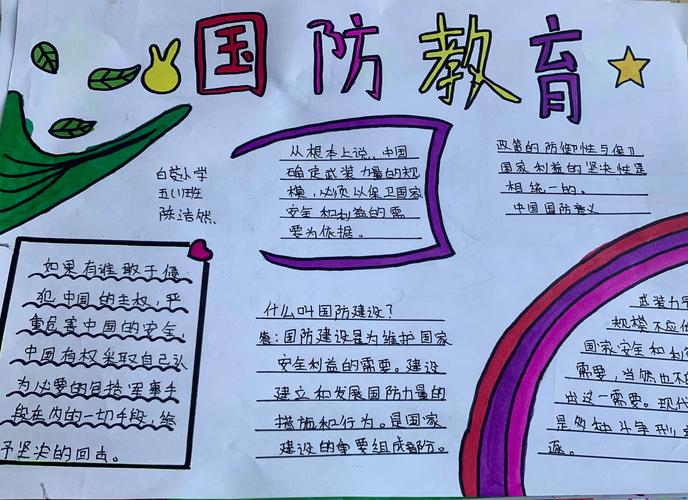 国防教育
白营小学
五(1)班
陈洁然
从根本上说,中国
确定武装力量的规
模,必须以保卫国家
安全和利益的需
要为依据。
政策的防御性与保卫
国家利益的坚决性是
相统一的。
中国国防意义
如果有谁敢于侵
犯中国的主权,严
重危害中国的安全,
中国有权采取自己认
为必要的包括军事手
段在内的一切手段,给
予坚决的回击。
什么叫国防建设?
答:国防建设是为维护国家
安全利益的需要。建设
建立和发展国防力量的
措施和行为。是国家
建设的重要组成部份。
武装力
规模不应
国家安全和利
需要,当然也不
出这一需要。现代
是多种斗争型